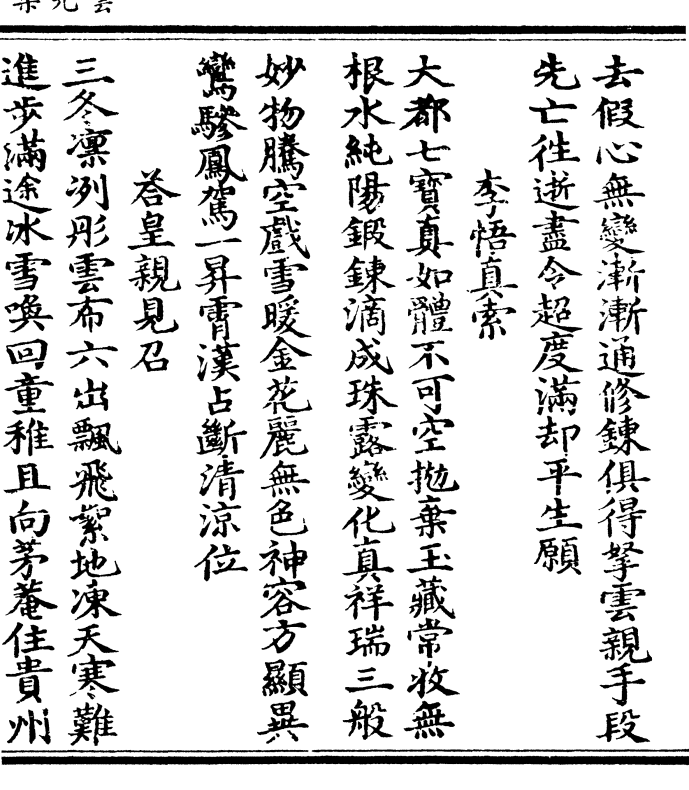 去假心無變漸漸通修鍊俱得拏雲親手段
先亡徃逝盡令超度滿却平生願
李悟真索
大都七寶真如體不可空抛棄玉藏常收無
根水純陽鍛鍊滴成珠露變化真祥瑞三般
妙物騰空戲雪暖金花麗無色神容方顯異
鸞驂鳳駕一昇霄漢占斷清涼位
荅皇親見召
三冬凛冽彤雲布六出飄飛絮地凍天寒難
進步滿途冰雪喚回童稚且向茅菴住貴州